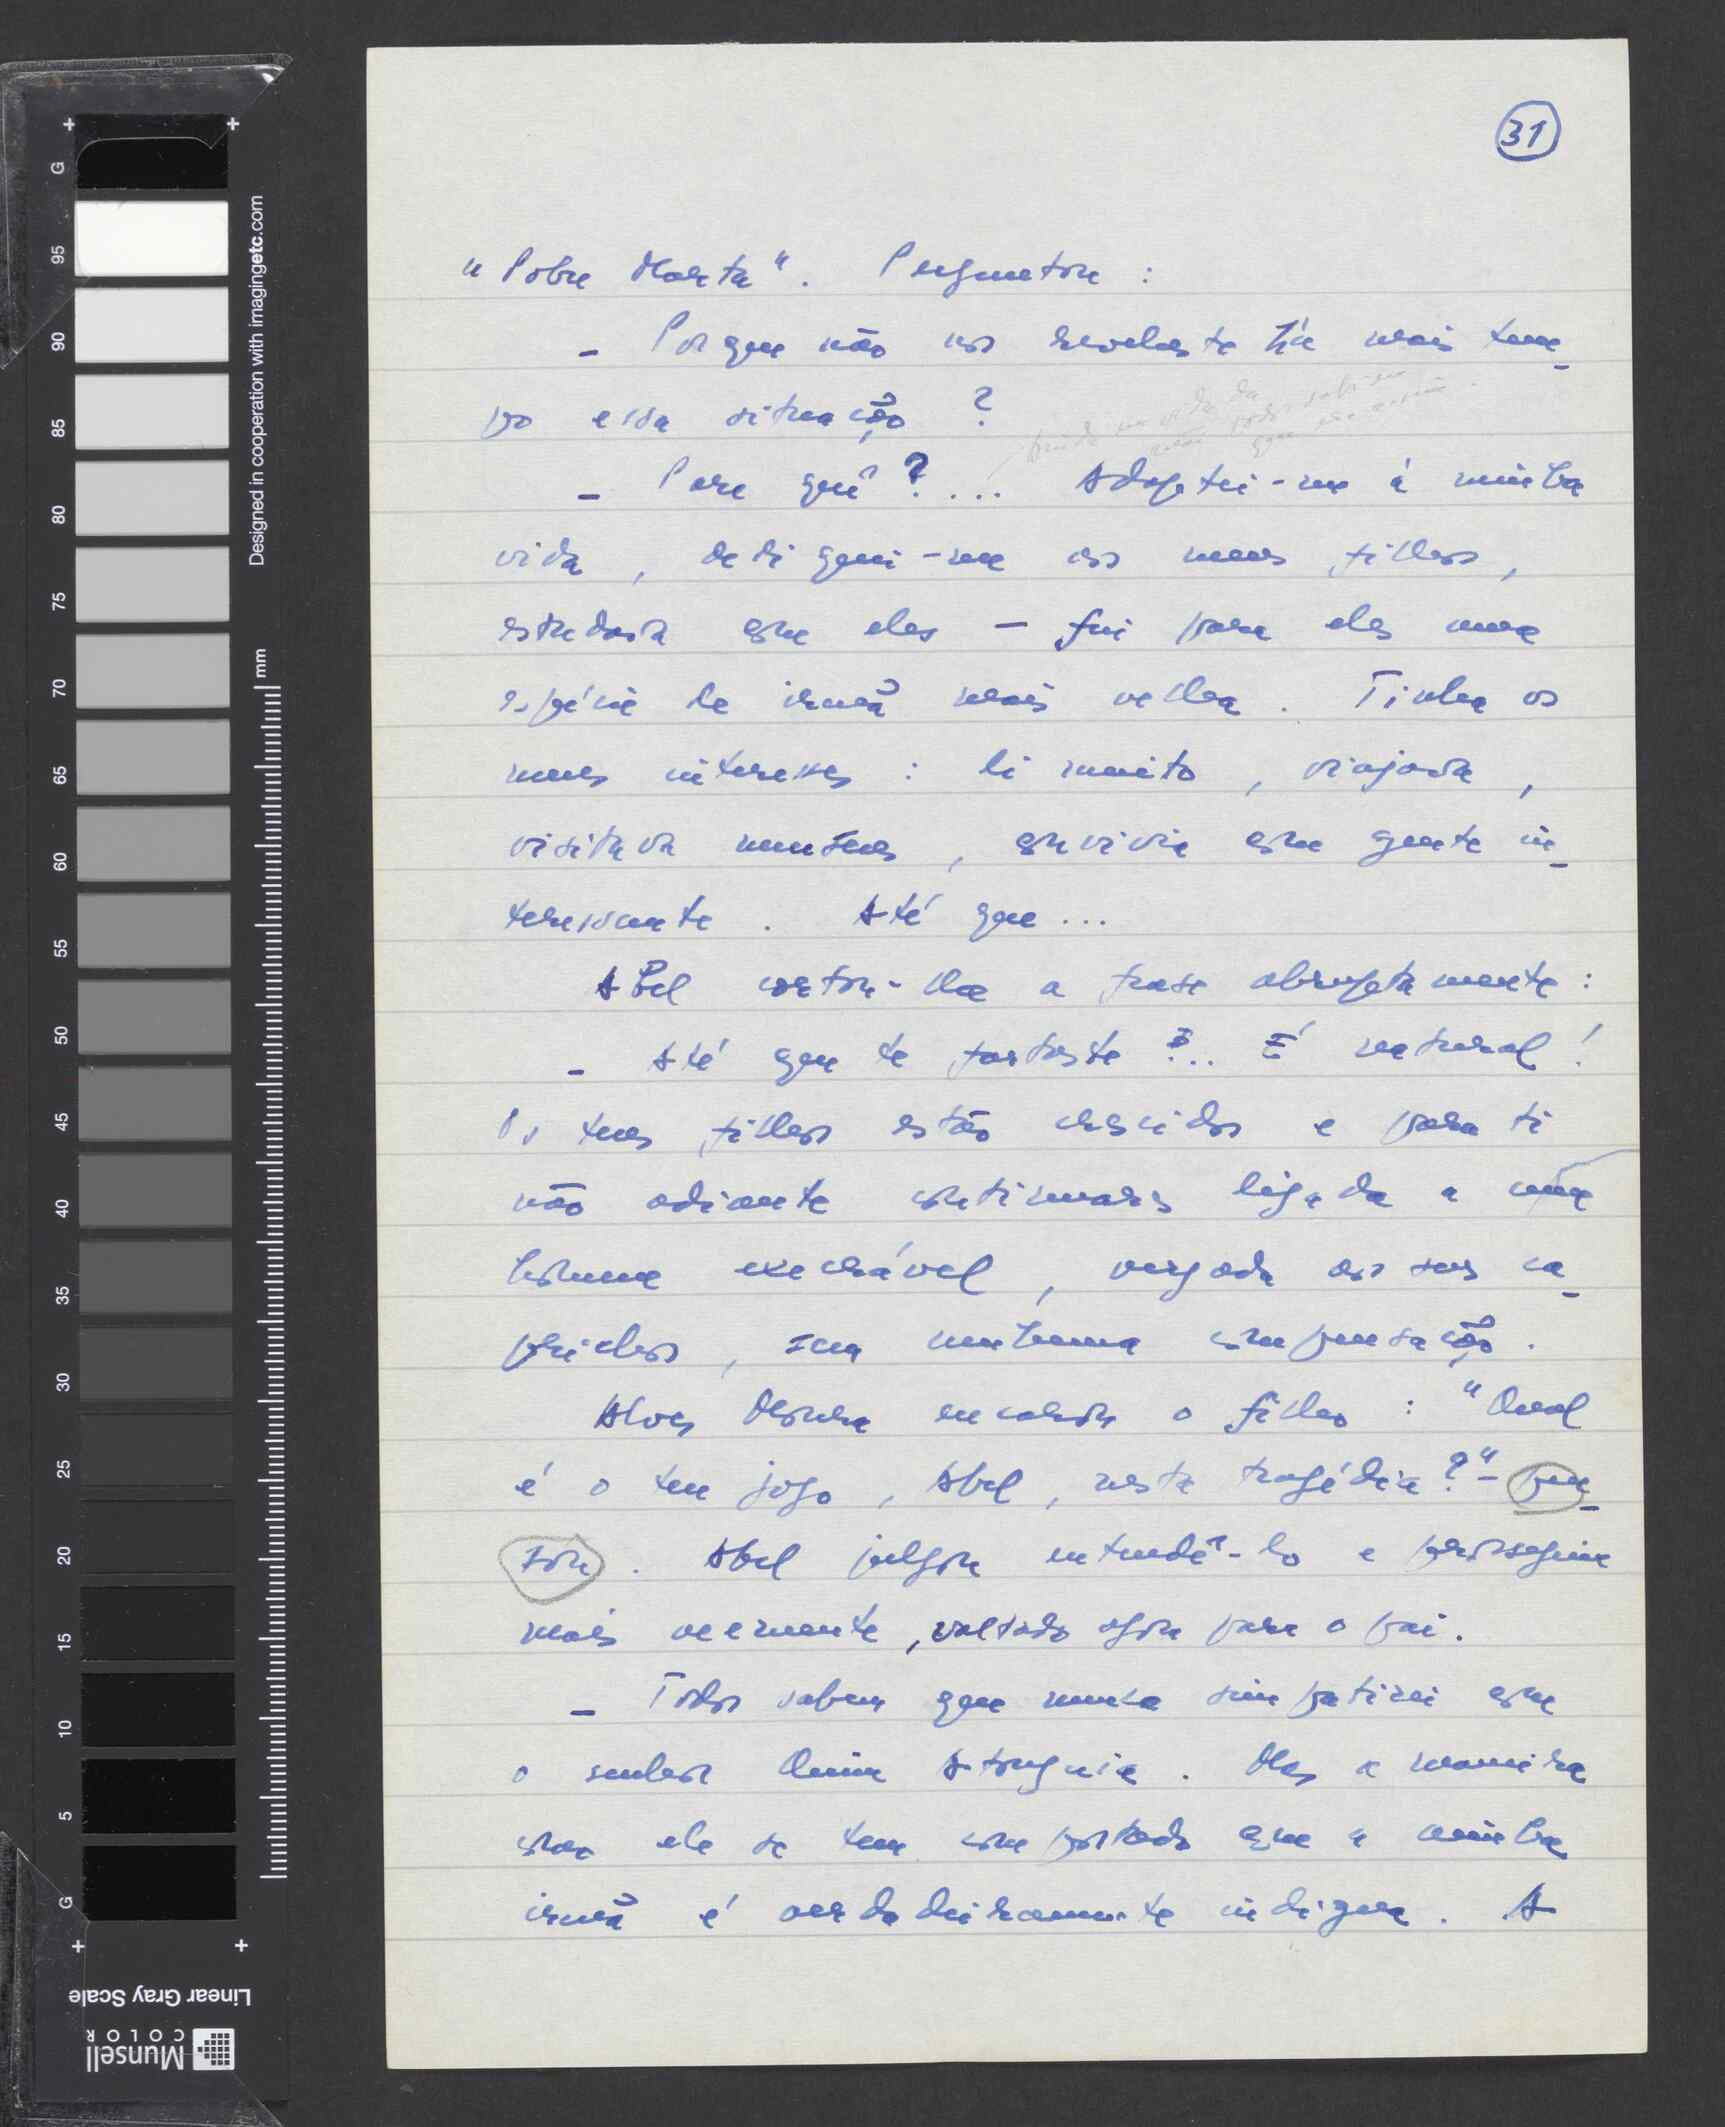 31
"Pobre Marta". Perguntou:
– Porque não nos revelaste há mais tem-
po essa situação?
– Para quê?... Adaptei-me à minha
vida, dediquei-me aos meus filhos,
estudava com eles – fui para eles uma
espécie de irmã mais velha. Tinha os
meus interesses: li muito, viajava,
visitava museus, convivia com gente in-
teressante. Até que...
Abel cortou-lhe a frase abruptamente:
– Até que te fartaste?... É natural!
Os teus filhos estão crescidos e para ti
não adianta continuares ligada a um
homem execrável, vergada aos seus ca-
prichos, sem nenhuma compensação.
Alves Moura encarou o filho: "Qual
é o teu jogo, Abel, nesta tragédia?" – pen-
sou. Abel julgou entendê-lo e prosseguiu
mais veemente, voltado agora para o pai.
– Todos sabem que nunca simpatizei com
o senhor Quim Atouguia. Mas a maneira
como ele se tem comportado com a minha
irmã é verdadeiramente indigna. A
Designed in cooperation with imagingetc.com
mm
G
95
90
85
80
75
70
65
60
55
50
45
40
35
30
25
20
15
10
5
G
Linear Gray Scale
Munsell
COLOR